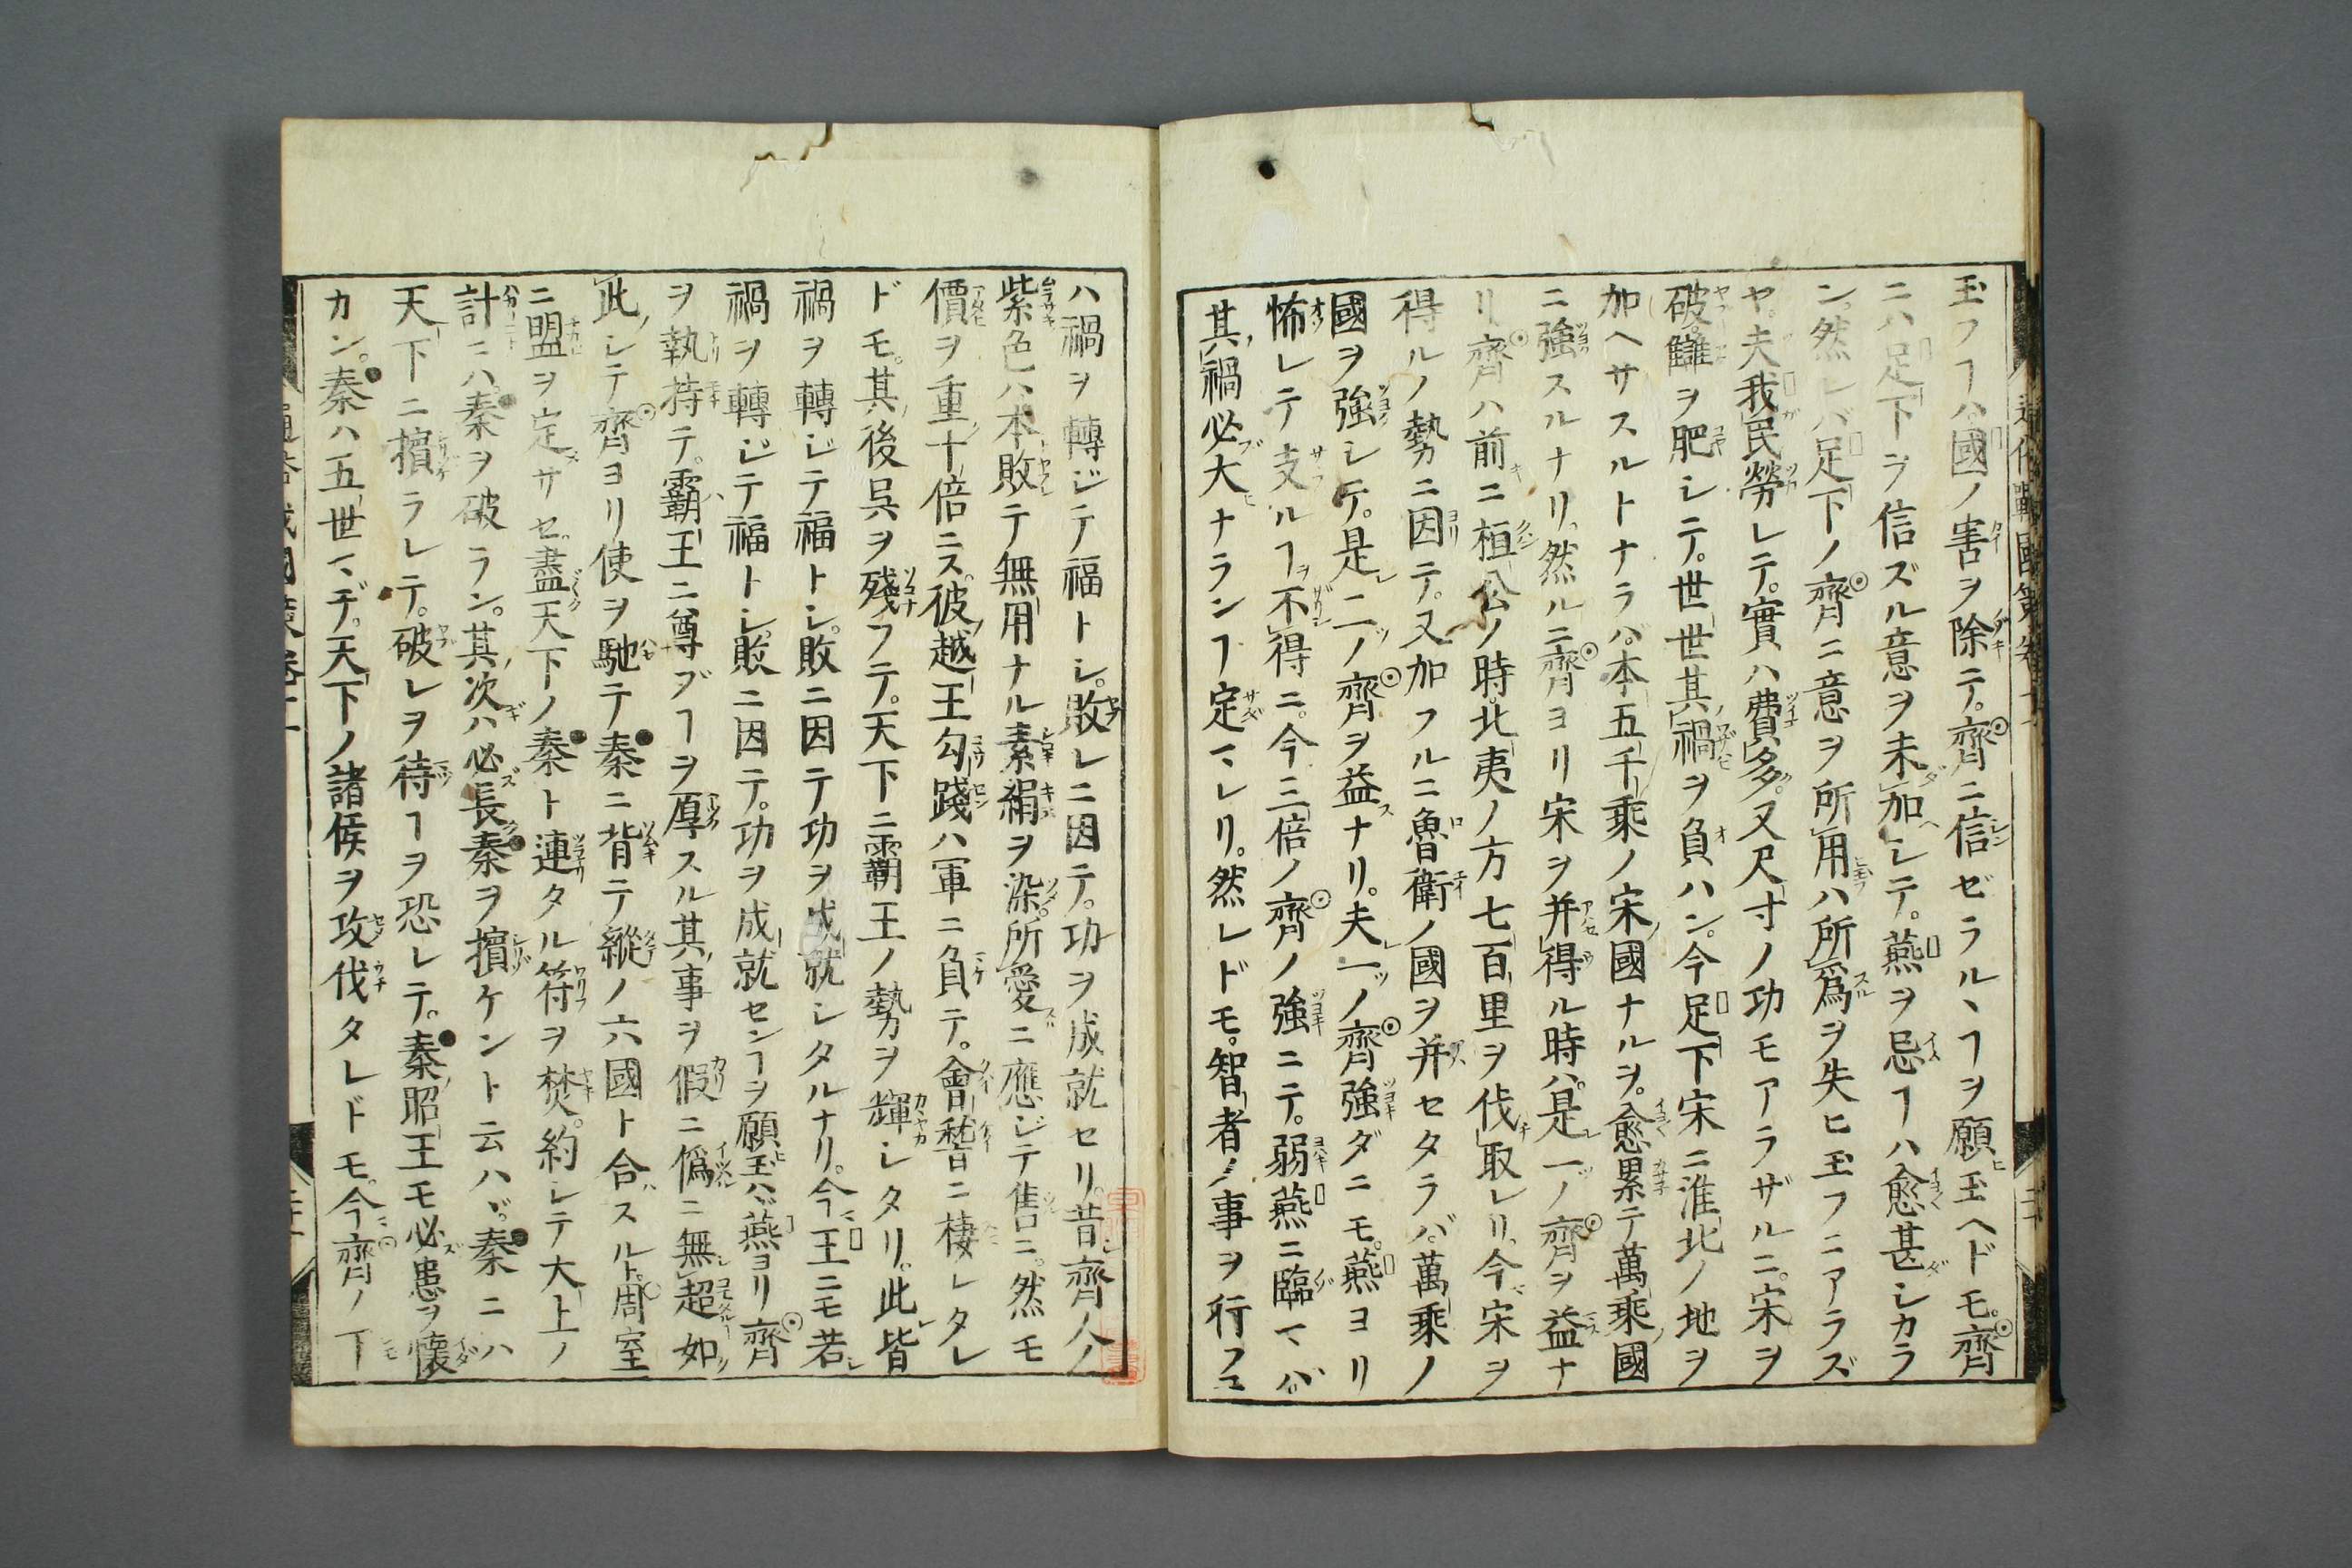 玉フヿハ國ノ害ヲ除テ。齊ニ信ゼラルヽヿヲ願玉ヘドモ。齊
ニハ足下ヲ信ズル意ヲ未加シテ。燕ヲ忌ヿハ愈甚シカラ
ン。然レバ足下ノ齊ニ意ヲ所用ハ所爲ヲ失ヒ玉フニアラズ
ヤ。夫我民勞レテ。實ハ費多。又尺寸ノ功モアラザルニ。宋ヲ
破。讎ヲ肥シテ。世世其禍ヲ負ハン。今足下宋ニ淮北ノ地ヲ
加ヘサスルトナラバ。本五千乘ノ宋國ナルヲ。愈累テ萬乘國
ニ強スルナリ。然ルニ齊ヨリ宋ヲ并得ル時ハ。是一ノ齊ヲ益ナ
リ。齊ハ前ニ桓公ノ時。北夷ノ方七百里ヲ伐取レリ。今宋ヲ
得ルノ勢ニ因テ。又加フルニ魯衛ノ國ヲ并セタラバ。萬乘ノ
國ヲ強シテ。是二ノ齊ヲ益ナリ。夫一ノ齊強ダニモ。燕ヨリ
怖レテ支ルヿ不得ニ。今三倍ノ齊ノ強ニテ。弱燕ニ臨マバ
其禍必大ナランヿ定マレリ。然レドモ。智者ノ事ヲ行フニ
ハ禍ヲ轉ジテ福トシ。敗レニ因テ。功ヲ成就セリ。昔齊ノ人ノ
紫色ハ本敗テ無用ナル素絹ヲ染。所愛ニ應ジテ售ニ。然モ
價ヲ重十倍ニス。彼越王勾踐ハ軍ニ負テ。會稽ニ棲レタレ
ドモ。其後呉ヲ殘フテ。天下ニ霸王ノ勢ヲ輝シタリ。此皆
禍ヲ轉ジテ福トシ。敗ニ因テ功ヲ成就シタルナリ。今王ニモ若
禍ヲ轉ジテ福トシ。敗ニ因テ。功ヲ成就センヿヲ願玉ハヾ。燕ヨリ齊
ヲ執持テ。霸王ニ尊ブヿヲ厚スル其事ヲ假ニ僞ニ無超如
此シテ齊ヨリ使ヲ馳テ秦ニ背テ縱ノ六國ト合スルト。周室
ニ盟ヲ定サセ。盡天下ノ秦ト連タル符ヲ焚。約シテ大上ノ
計ニハ。秦ヲ破ラン。其次ハ必長秦ヲ擯ケント云ハヾ。秦ニハ
天下ニ擯ラレテ。破レヲ待ヿヲ恐レテ。秦昭王モ必患ヲ懷
カン。秦ハ五世マデ。天下ノ諸侯ヲ攻伐タレドモ。今齊ノ下